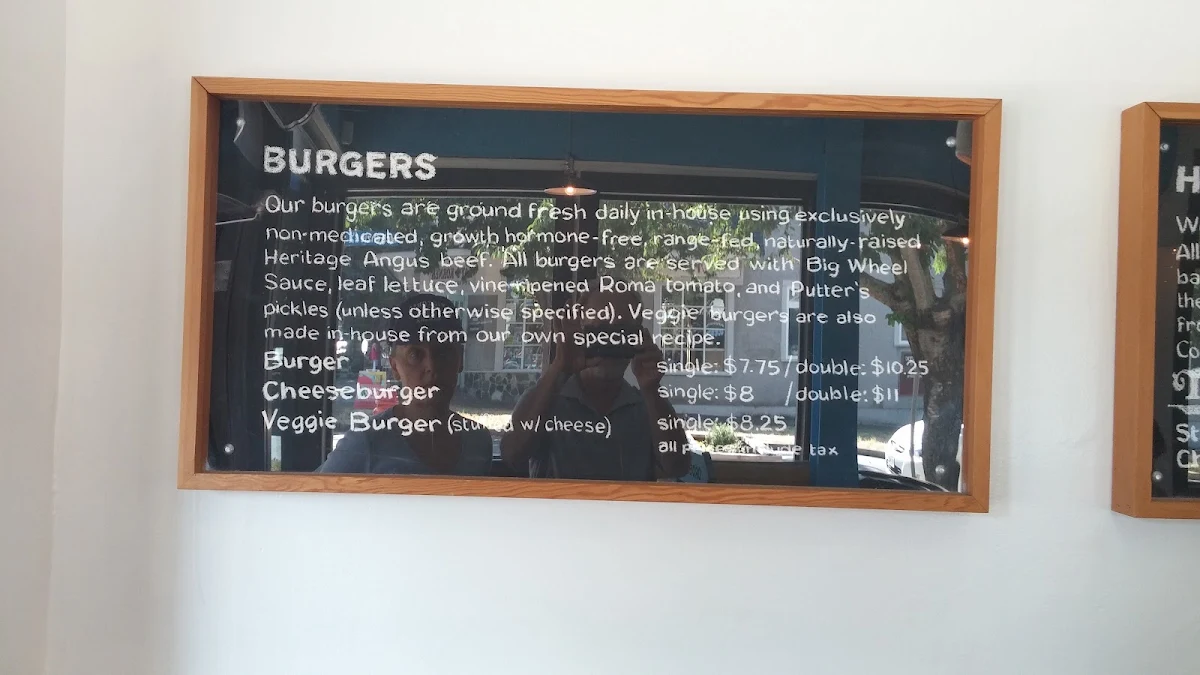 BURGERS
Our burgers are ground fresh daily in-house using exclusively
non-medicated, growth hormone-free, range-fed, naturally-raised
Heritage Angus beef. All burgers are served with Big Wheel
Sauce, leaf lettuce, vine-ripened Roma tomato, and Putter's
pickles (unless otherwise specified). Veggie burgers are also
made in-house from our own special recipe.
Burger single: $7.75 / double: $10.25
Cheeseburger single: $8 / double: $11
Veggie Burger (stuffed w/ cheese) single: $8.25
all prices include tax
H
W
All
ba
th
fr
Co
St
Ch